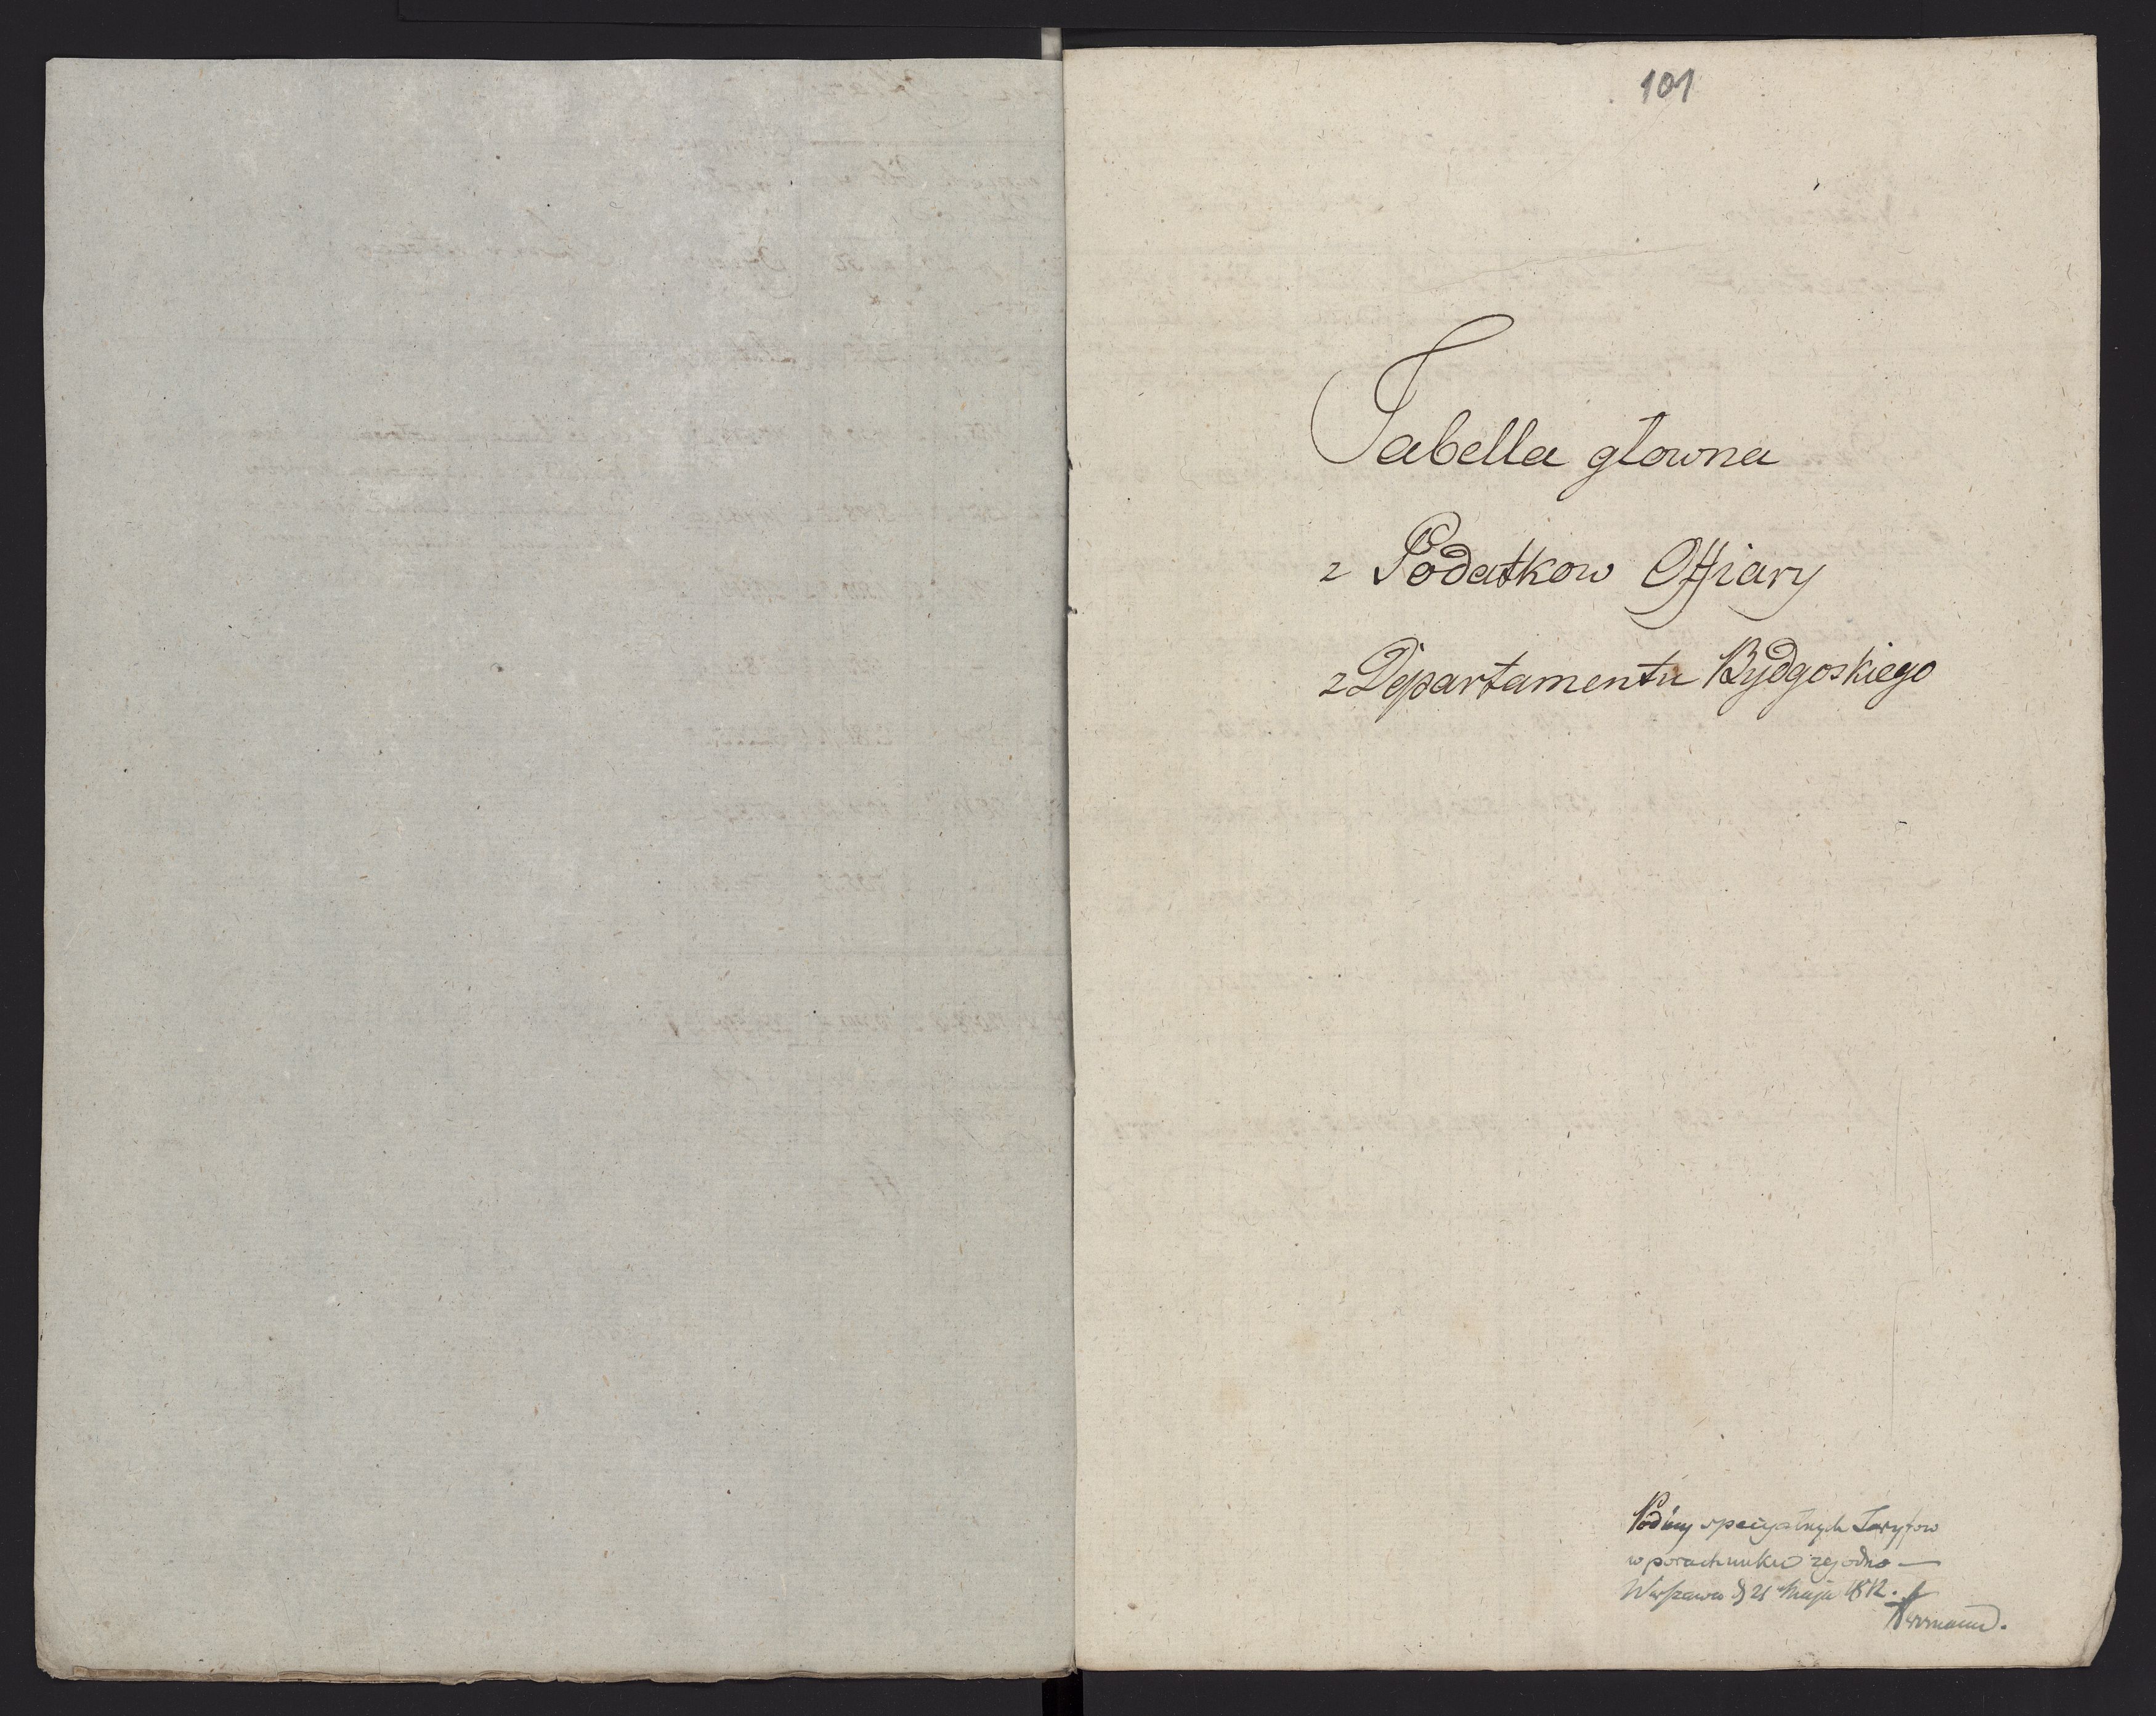 101
Tabella głowna
z Podatkow Offiary
z Departamentu Bydgoskiego
specyalnych Taryfow
w porachunku zgodno —
Warszawa d 21 Maja 1812.
Herrmann.